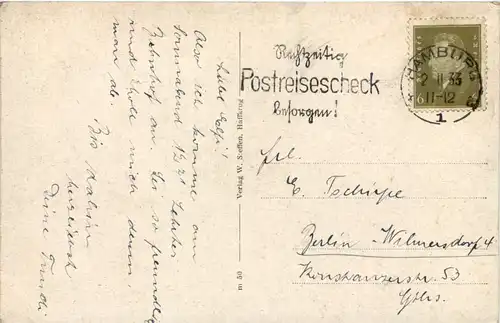 Liebe Elfi!
Also ich komme am
Sonnabend 13.21 Lehrter
Bahnhof an. Sei so freundlich
und hole mich dann
man ab.
Bis dahin
herzlichst
Deine Trudi
Verlag W. Steffen, Hamburg
m 50
Rechtzeitig
Postreisescheck
besorgen!
HAMBURG
2 II 33
11-12
1
Frl.
E. Tschirpe
Berlin-Wilmersdorf 4
Konstanzerstr. 53
Gths.